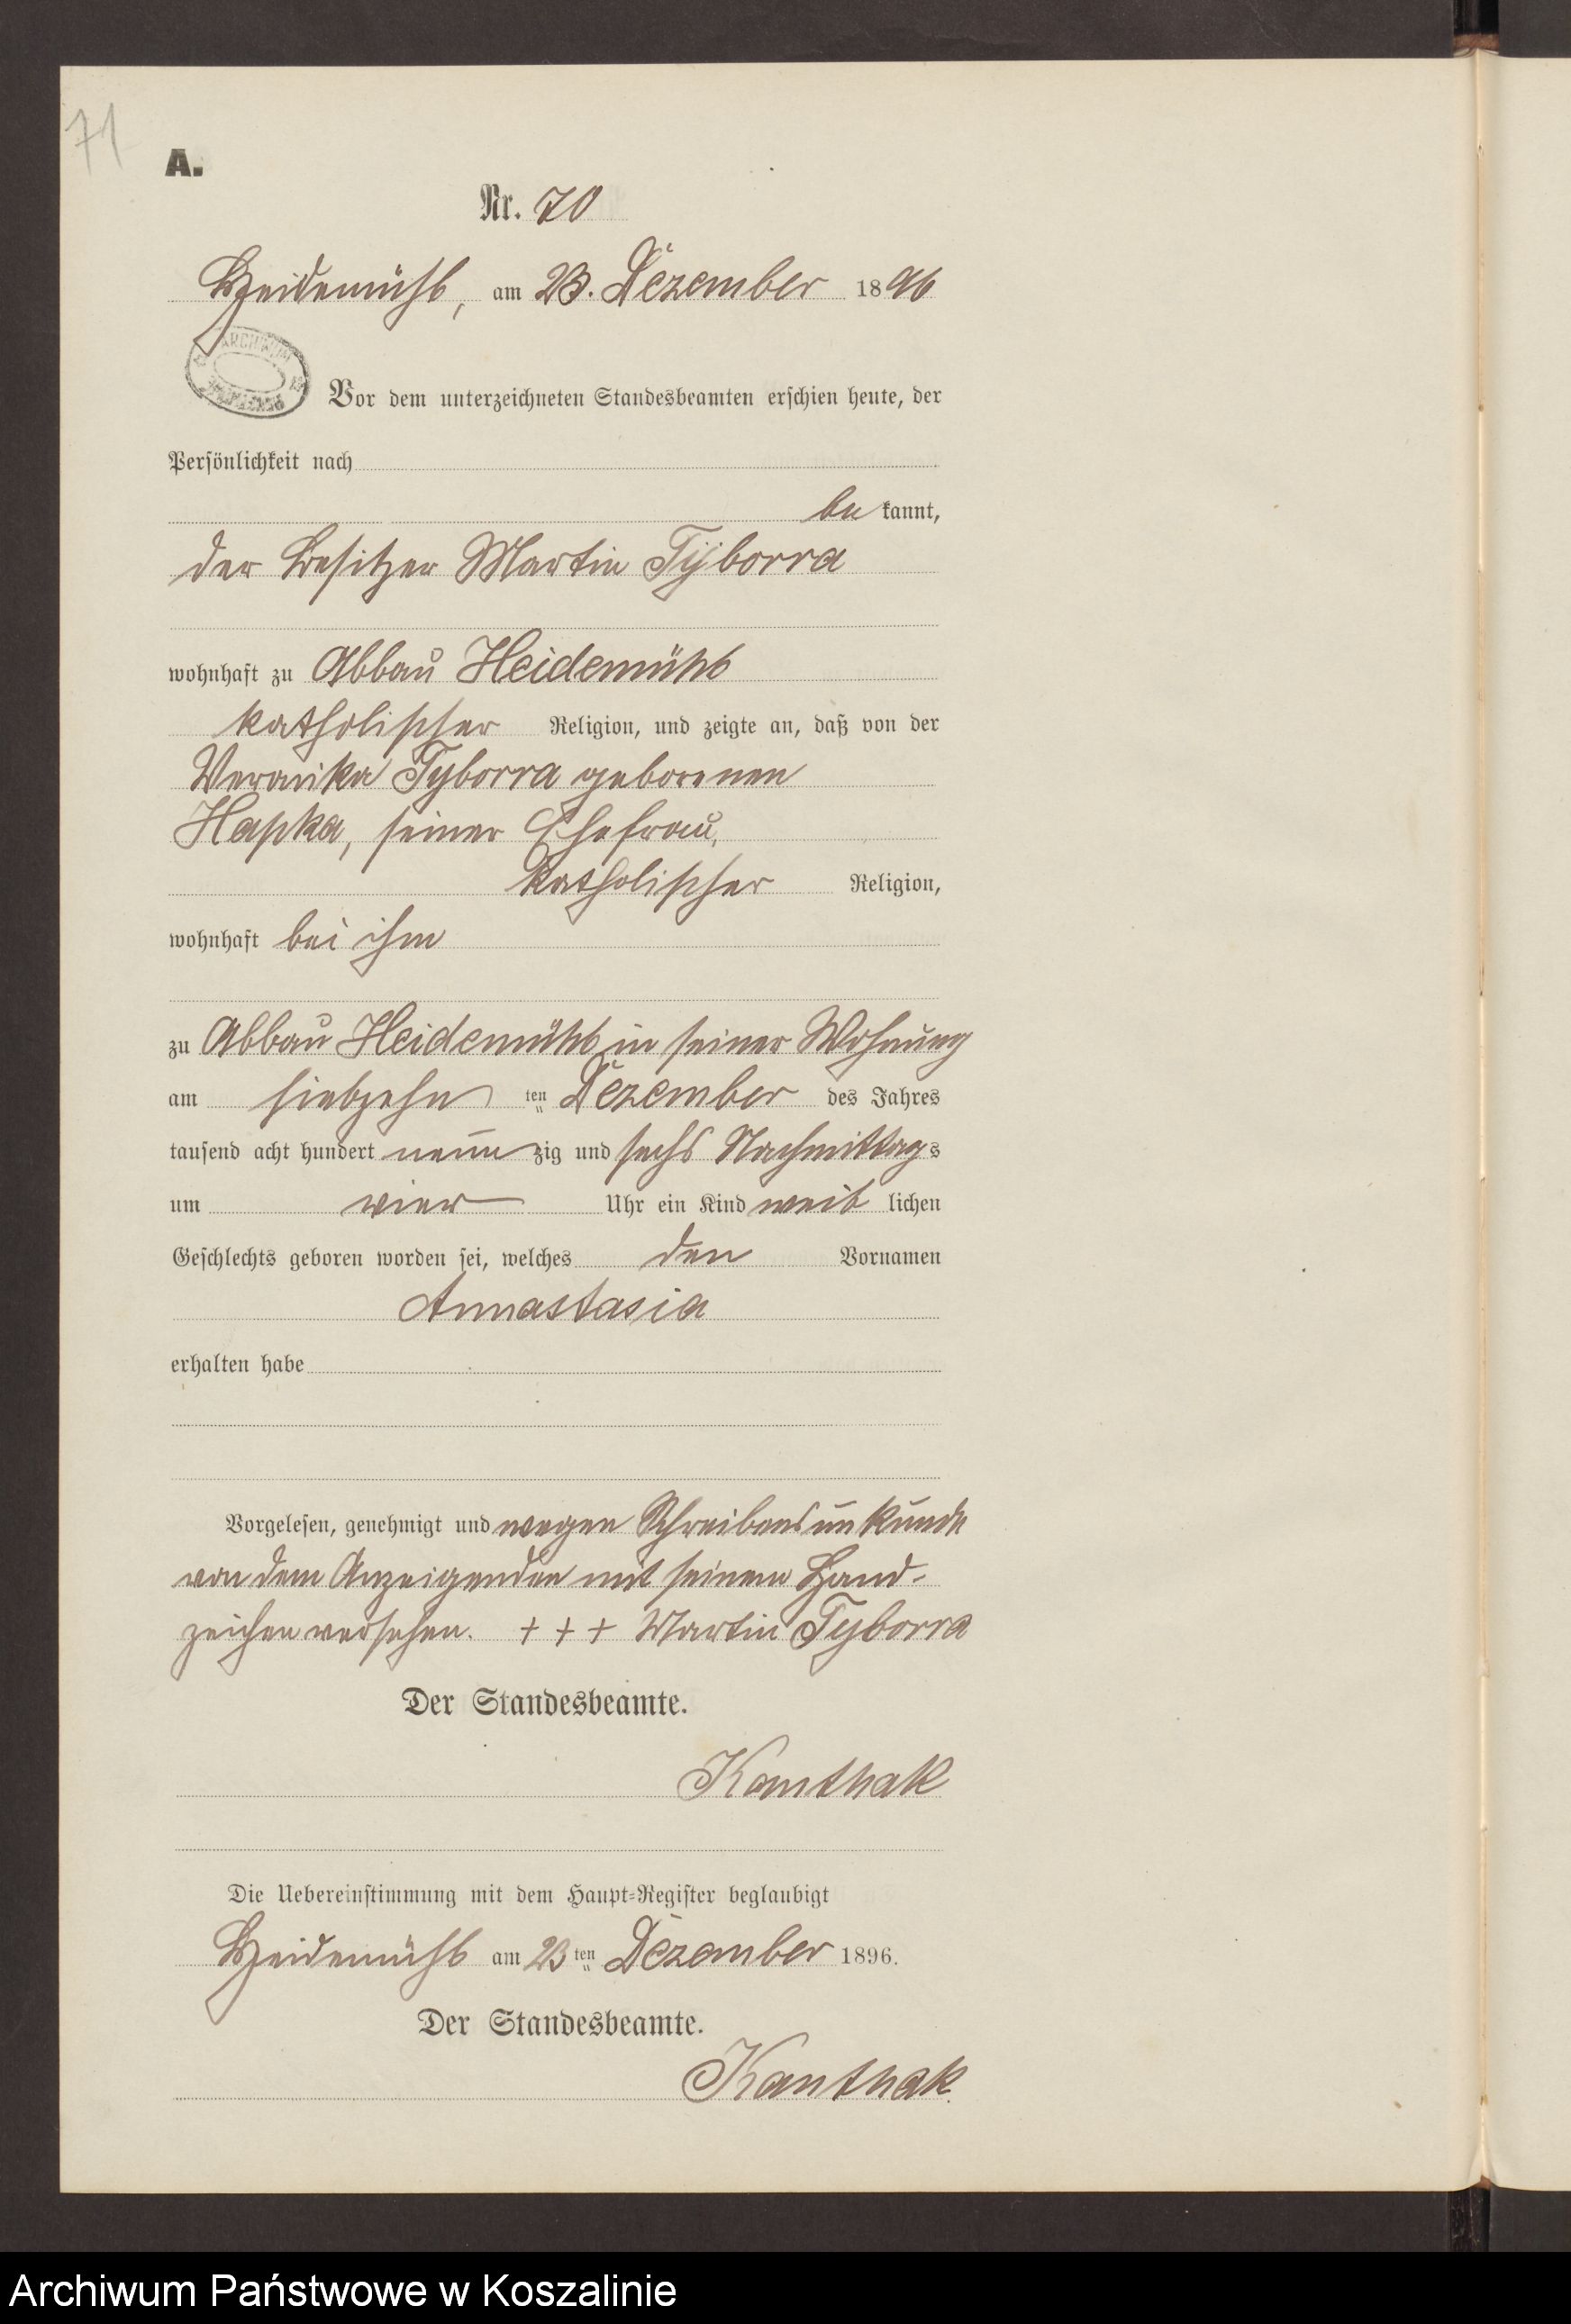 71
A.
Nr. 70
Heidemühl, am 23. Dezember 1896
ARCHIWUM
Vor dem unterzeichneten Standesbeamten erschien heute, der
Persönlichkeit nach
be kannt,
der Besitzer Martin Tyborra
wohnhaft zu Abbau Heidemühl
katholischer Religion, und zeigte an, daß von der
Veronika Tyborra geborenen
Hapka, seiner Ehefrau,
katholischer Religion,
wohnhaft bei ihm
zu Abbau Heidemühl in seiner Wohnung
am siebzehn ten Dezember des Jahres
tausend acht hundert neun zig und sechs Nachmittags
um vier Uhr ein Kind weib lichen
Geschlechts geboren worden sei, welches den Vornamen
Annastasia
erhalten habe
Vorgelesen, genehmigt und wegen Schreibensunkunde
von dem Anzeigenden mit seinem Hand-
zeichen versehen. + + + Martin Tyborra
Der Standesbeamte.
Kanthak
Die Uebereinstimmung mit dem Haupt-Register beglaubigt
Heidemühl am 23 ten Dezember 1896.
Der Standesbeamte.
Kanthak.
Archiwum Państwowe w Koszalinie